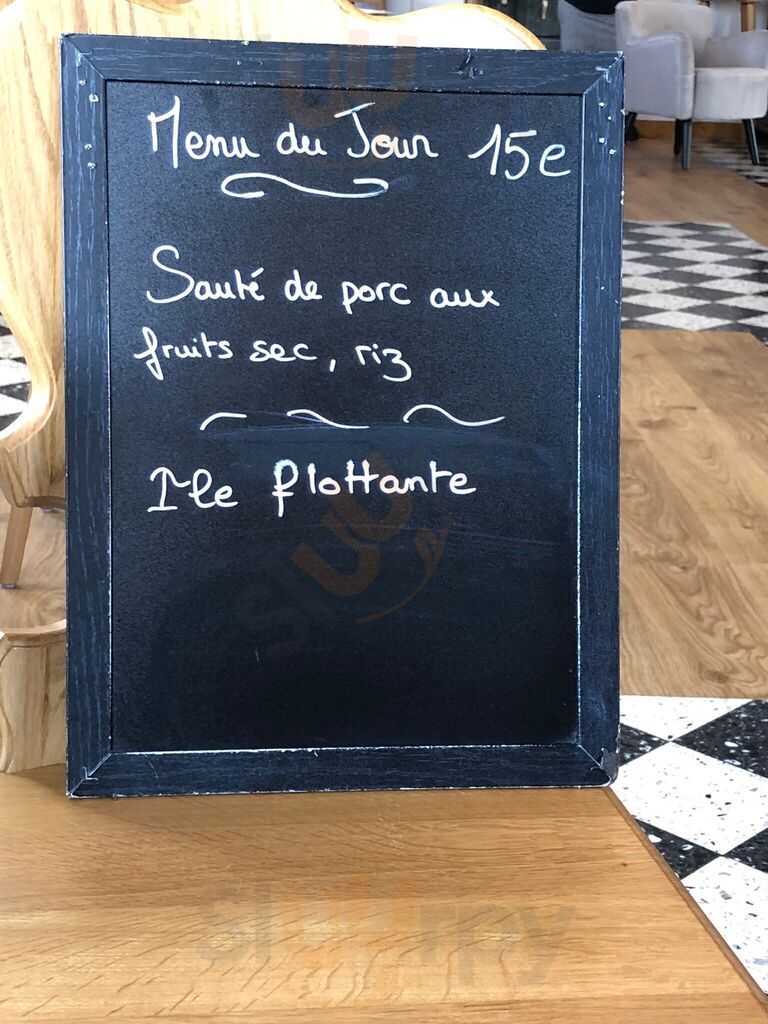 Menu du Jour 15e
Sauté de porc aux
fruits sec, riz
Île flottante
sluurpy
sluurpy